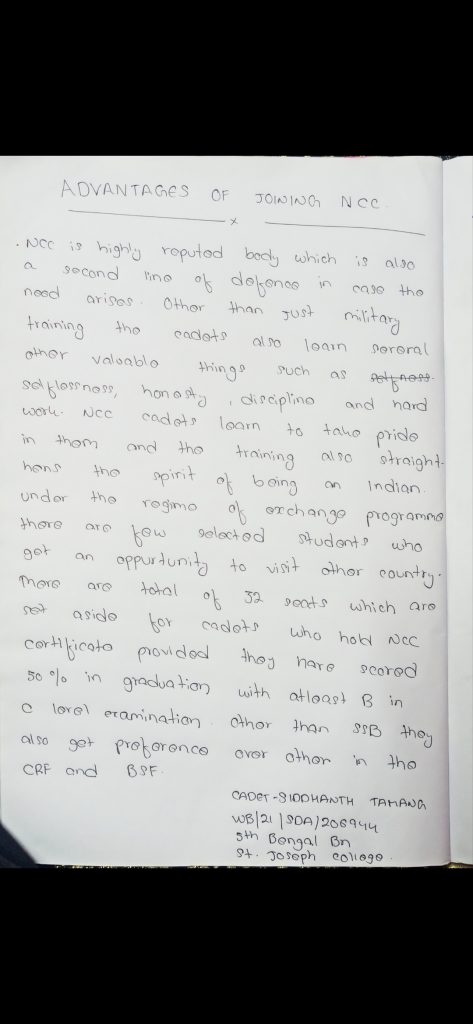 ADVANTAGES OF JOINING NCC.
x
. NCC is highly reputed body which is also
a second line of defence in case the
need arises. Other than just military
training the cadets also learn several
other valuable things such as
selflessness, honesty, discipline and hard
work. NCC cadets learn to take pride
in them and the training also straight-
hens the spirit of being an Indian.
under the regime of exchange programme
there are few selected students who
get an oppurtunity to visit other country.
There are total of 32 seats which are
set aside for cadets who hold NCC
certificate provided they have scored
50 % in graduation with atleast B in
C level examination. Other than SSB they
also get preference over other in the
CRF and BSF.
CADET - SIDDHANTH TAMANG
WB/21/SDA/206944
5th Bengal Bn
St. Joseph college.